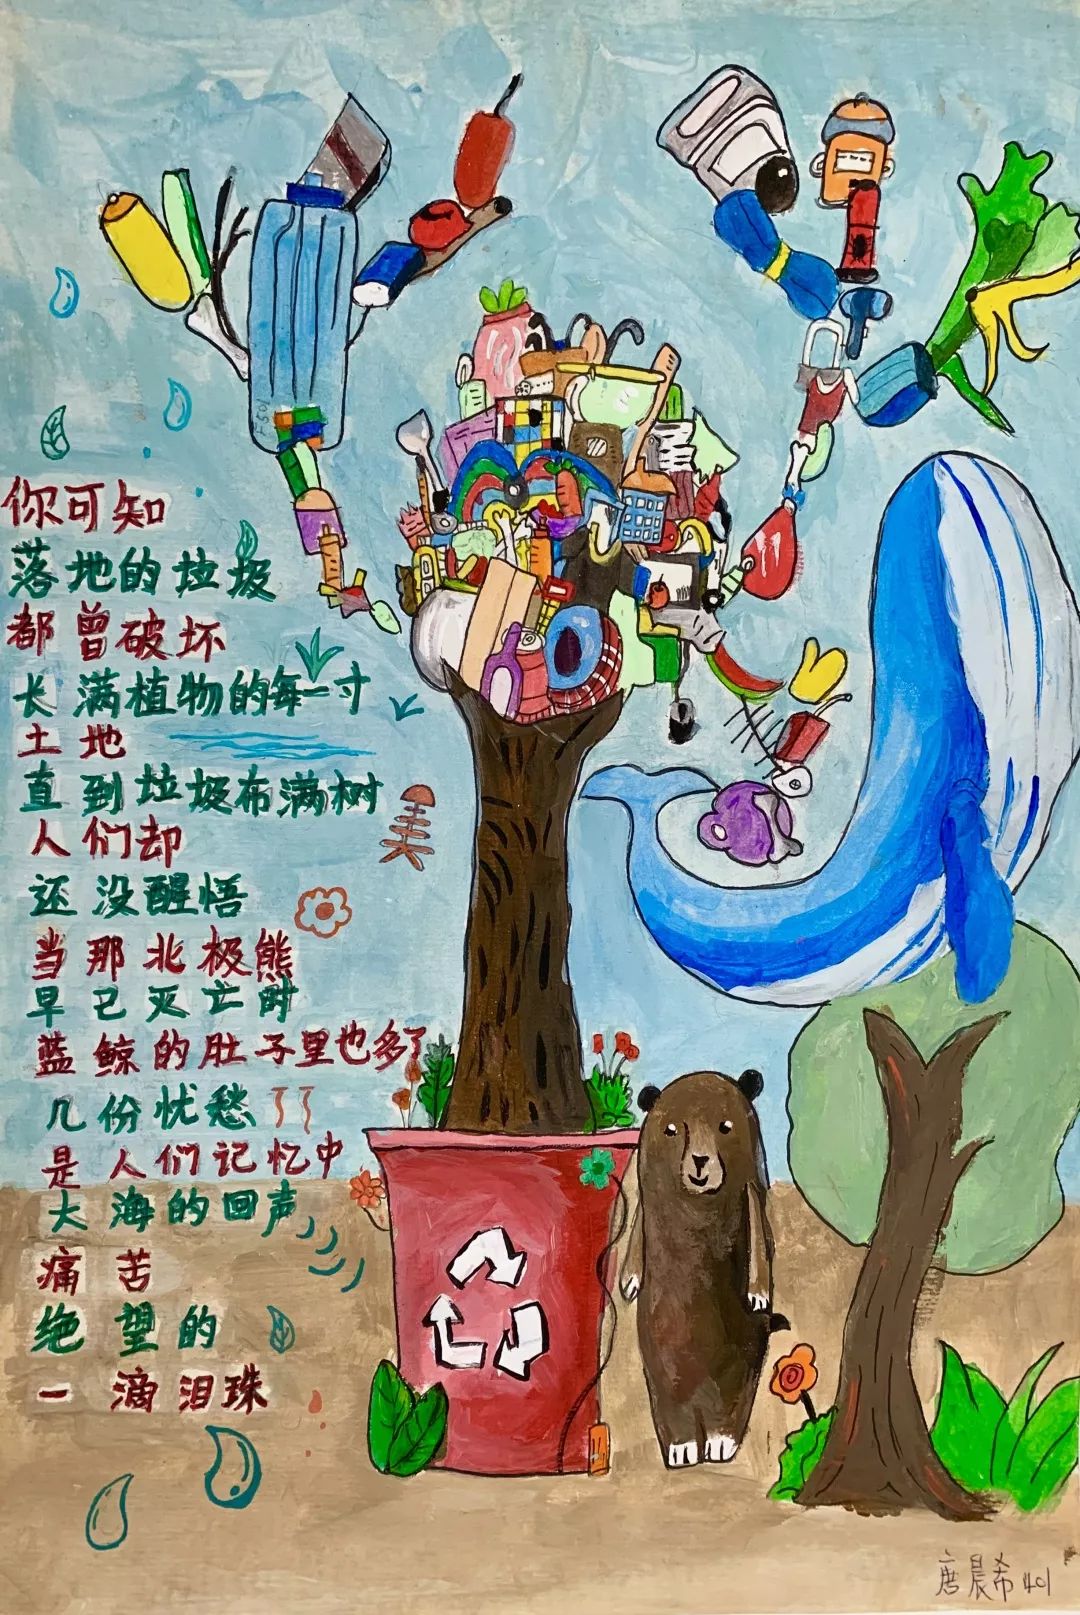 你可知
落地的垃圾
都曾破坏
长满植物的每一寸
土地
直到垃圾布满树
人们却
还没醒悟
当那北极熊
早已灭亡时
蓝鲸的肚子里也多了
几份忧愁
是人们记忆中
大海的回声
痛苦
绝望的
一滴泪珠
唐晨希 401